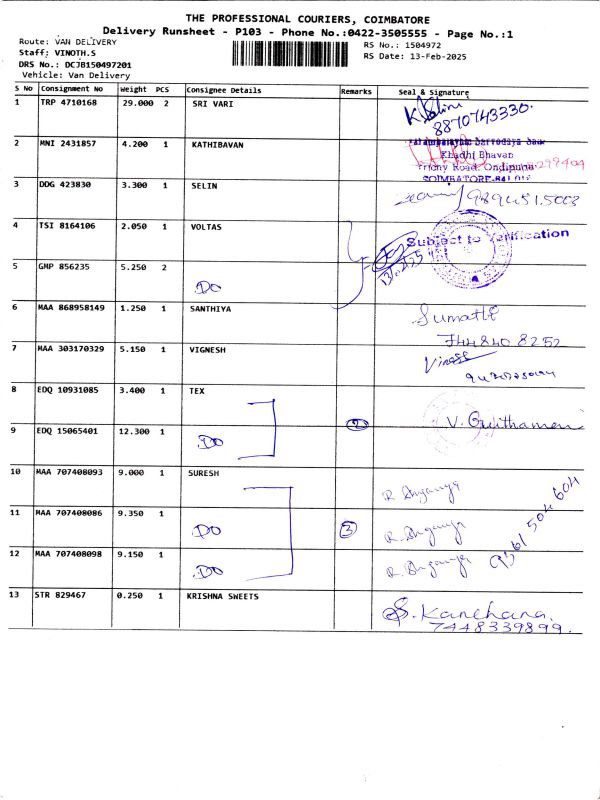 THE PROFESSIONAL COURIERS, COIMBATORE
Delivery Runsheet - P103 - Phone No.:0422-3505555 - Page No.:1
Route: VAN DELIVERY
RS No.: 1504972
Staff: VINOTH.S
RS Date: 13-Feb-2025
DRS No.: DCJB150497201
Vehicle: Van Delivery
S No Consignment No Weight PCS Consignee Details Remarks Seal & signature
1 TRP 4710168 29.000 2 SRI VARI
8870743330.
2 MNI 2431857 4.200 1 KATHIBAVAN
Sarvodaya
Khadhi Bhavan
Trichy Road, Ondipudur
COIMBATORE-641 016
3 DDG 423830 3.300 1 SELIN
4 TSI 8164106 2.050 1 VOLTAS
Subject to Verification
5 GMP 856235 5.250 2
DO
6 MAA 868958149 1.250 1 SANTHIYA
Sumathi
744840 8252
7 MAA 303170329 5.150 1 VIGNESH
8 EDQ 10931085 3.400 1 TEX
2
9 EDQ 15065401 12.300 1
DO
10 MAA 707408093 9.000 1 SURESH
11 MAA 707408086 9.350 1
DO 3
12 MAA 707408098 9.150 1
DO
13 STR 829467 0.250 1 KRISHNA SWEETS
S. Kanchana.
7448339899.